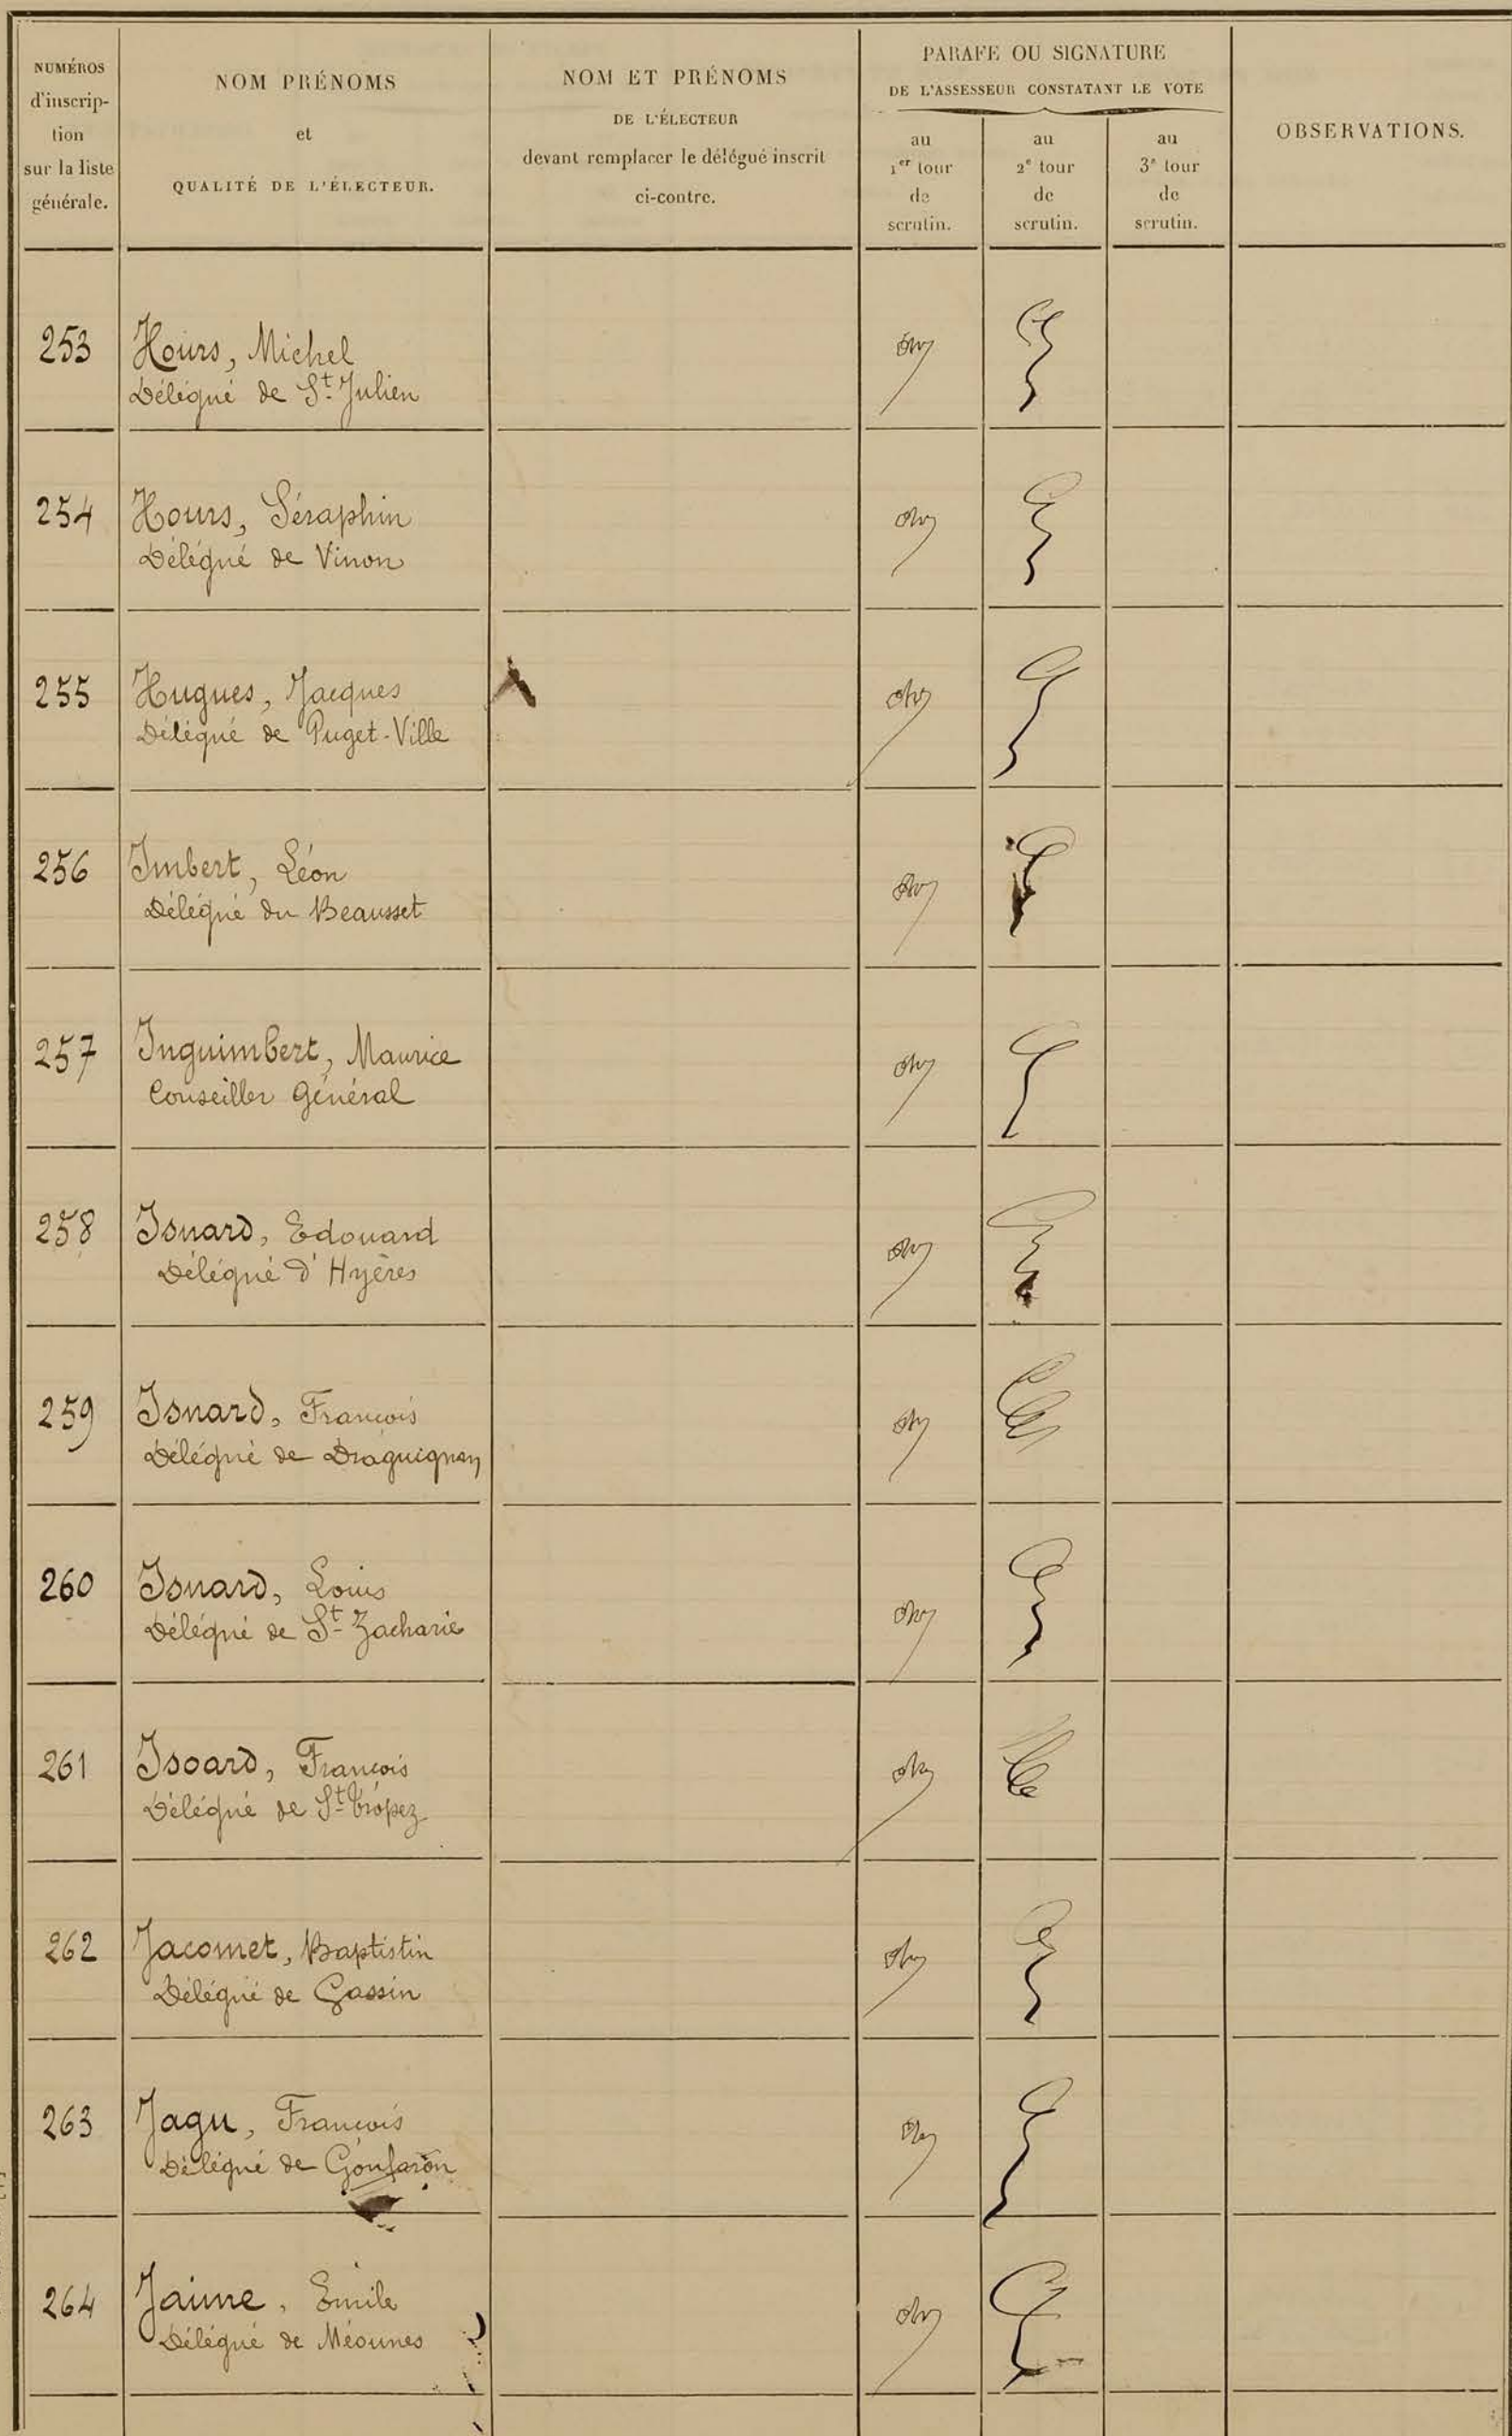 NUMÉROS
d'inscrip-
tion
sur la liste
générale.
NOM PRÉNOMS
et
QUALITÉ DE L'ÉLECTEUR.
NOM ET PRÉNOMS
DE L'ÉLECTEUR
devant remplacer le délégué inscrit
ci-contre.
PARAFE OU SIGNATURE
DE L'ASSESSEUR CONSTATANT LE VOTE
au
1er tour
de
scrutin.
au
2e tour
de
scrutin.
au
3e tour
de
scrutin.
OBSERVATIONS.
253 Hours, Michel
Délégué de St. Julien
254 Hours, Séraphin
Délégué de Vinon
255 Hugues, Jacques
Délégué de Puget-Ville
256 Imbert, Léon
Délégué du Beausset
257 Inguimbert, Maurice
Conseiller Général
258 Isnard, Edouard
Délégué d'Hyères
259 Isnard, François
Délégué de Draguignan
260 Isnard, Louis
Délégué de St. Zacharie
261 Isoard, François
Délégué de St. Tropez
262 Jacomet, Baptistin
Délégué de Gassin
263 Jagu, François
Délégué de Gonfaron
264 Jaime, Emile
Délégué de Méounes